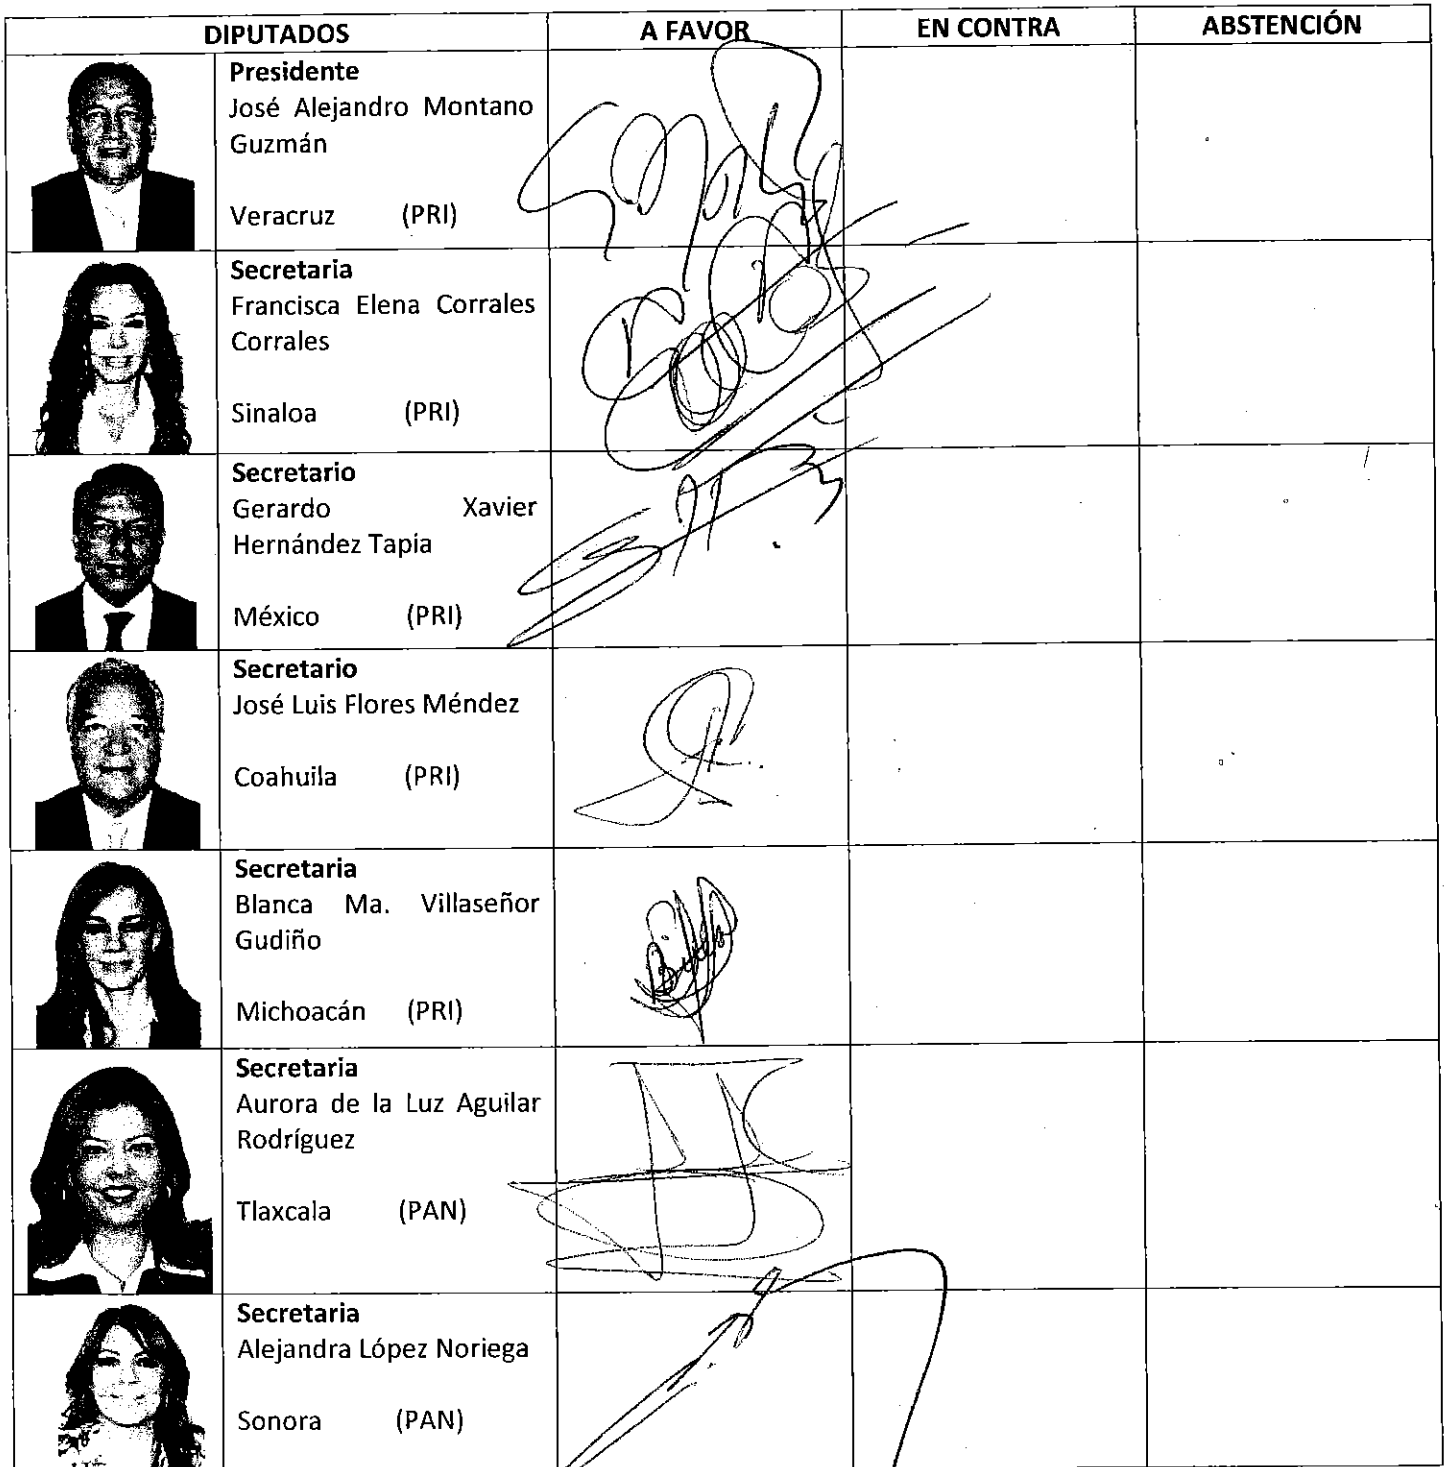 DIPUTADOS A FAVOR EN CONTRA ABSTENCIÓN
Presidente
José Alejandro Montano
Guzmán
Veracruz (PRI)
Secretaria
Francisca Elena Corrales
Corrales
Sinaloa (PRI)
Secretario
Gerardo Xavier
Hernández Tapia
México (PRI)
Secretario
José Luis Flores Méndez
Coahuila (PRI)
Secretaria
Blanca Ma. Villaseñor
Gudiño
Michoacán (PRI)
Secretaria
Aurora de la Luz Aguilar
Rodríguez
Tlaxcala (PAN)
Secretaria
Alejandra López Noriega
Sonora (PAN)